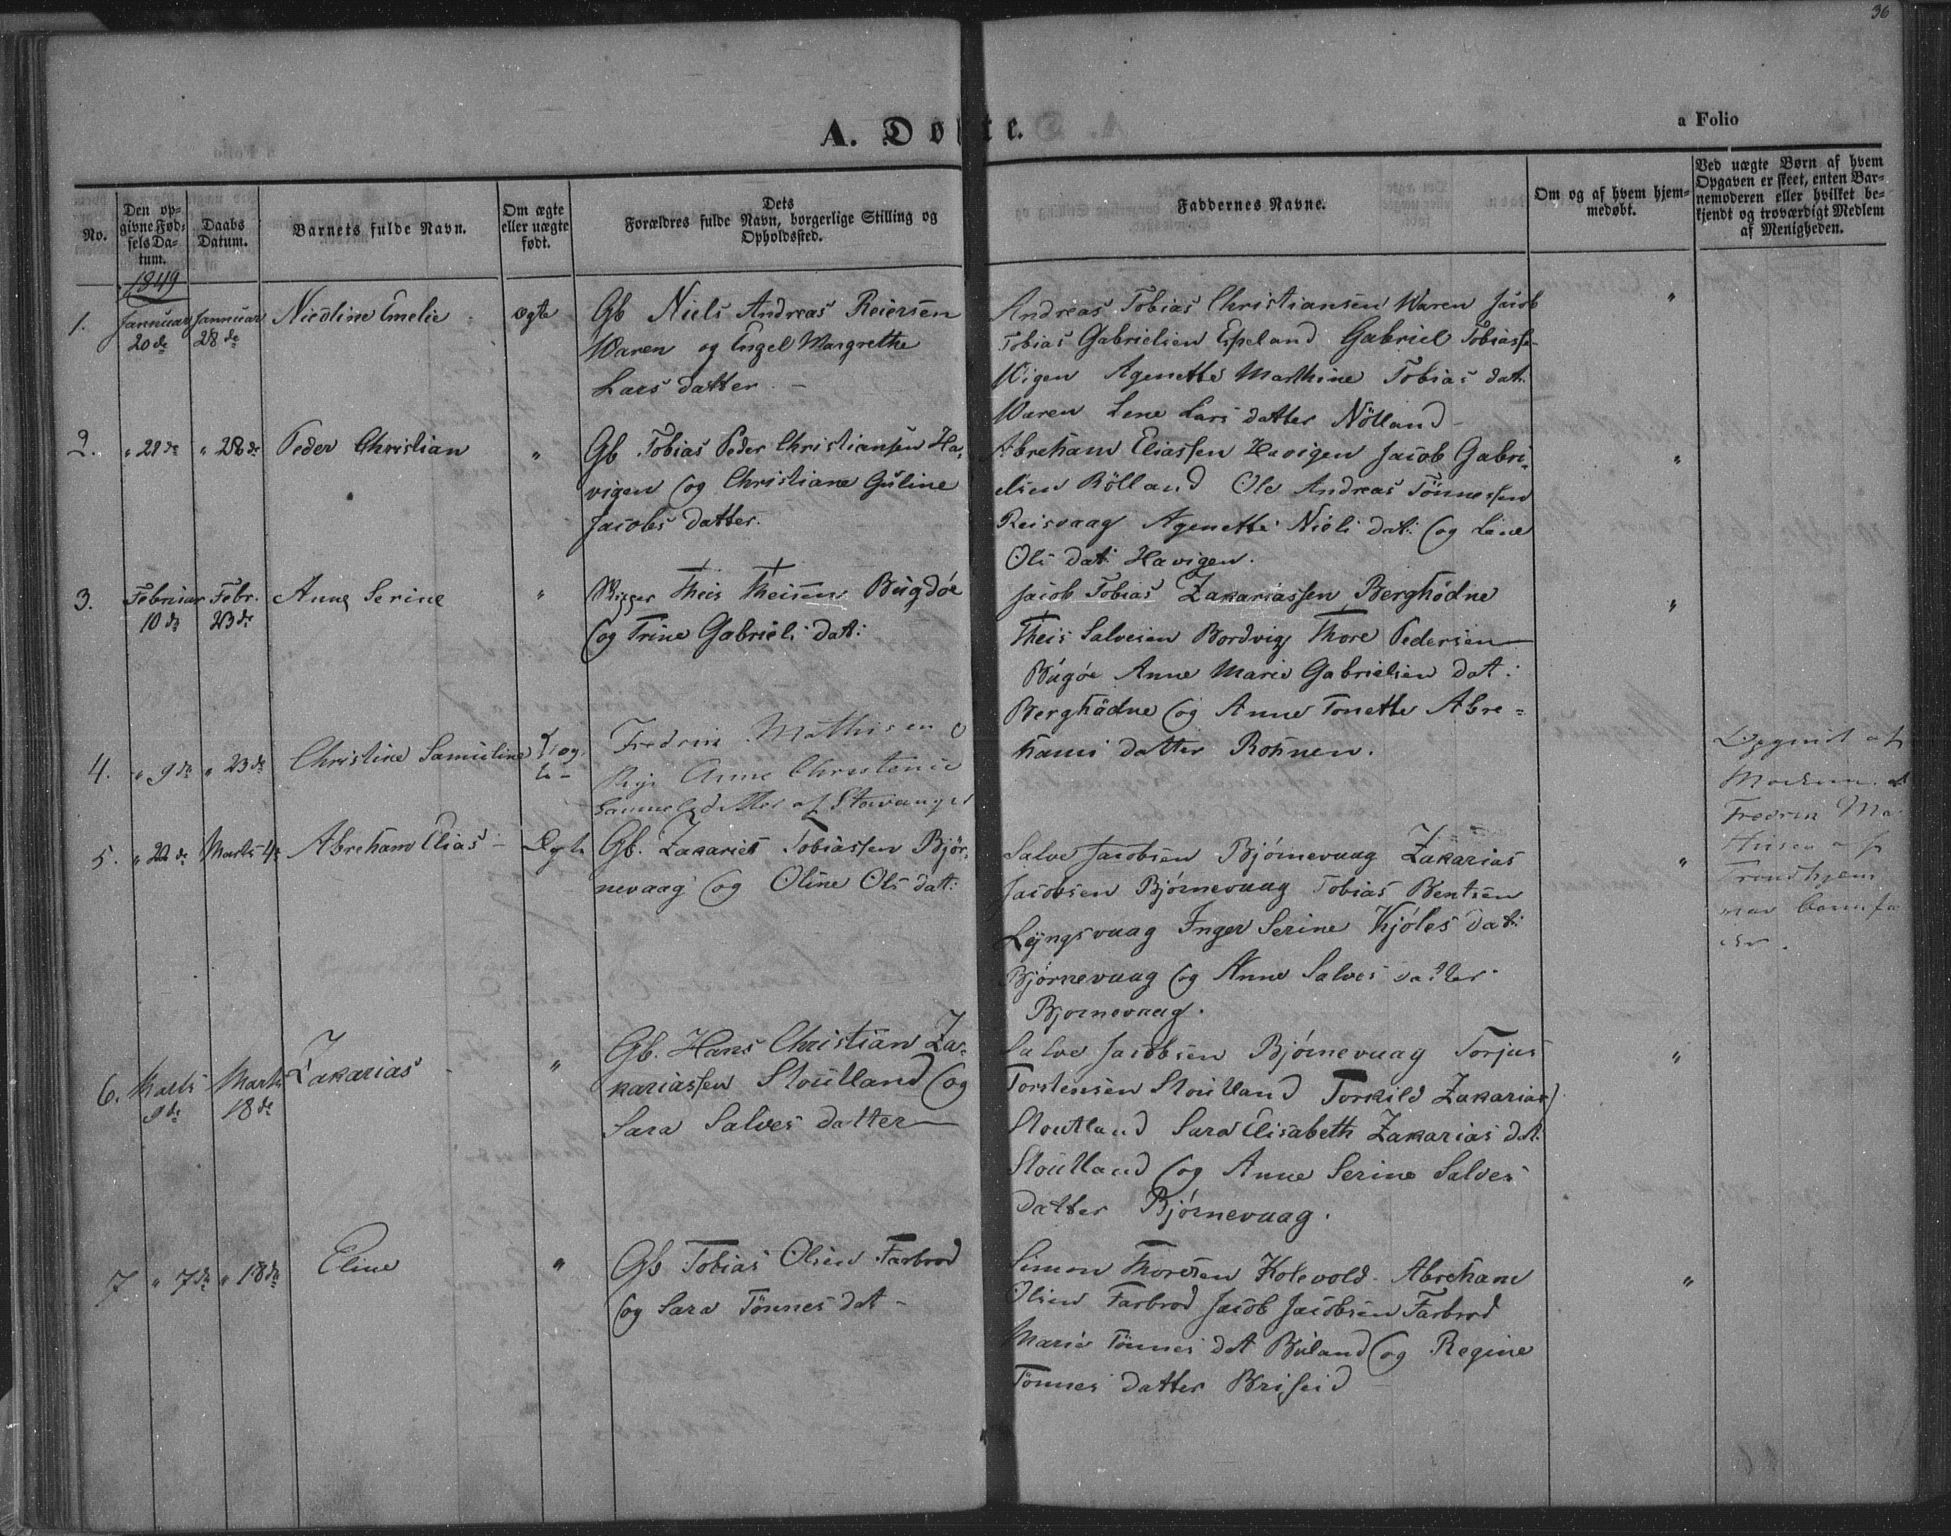 36
A. Døbte.
a Folio
No.
Den op-
givne Fød-
sels Da-
tum.
Daabs
Datum.
Barnets fulde Navn.
Om ægte
eller uægte
født.
Dets
Forældres fulde Navn, borgerlige Stilling og
Opholdssted.
Faddernes Navne.
Om og af hvem hjem-
medøbt.
Ved uægte Børn af hvem
Opgaven er skeet, enten Bar-
nemoderen eller hvilket be-
kjendt og troværdigt Medlem
af Menigheden.
1849
1.
Januar
20 de
Januar
28 de
Nicoline Emelie
ægte
Gb Niels Andreas Reiersen
Waren og Engel Margrethe
Lars datter -
Andreas Tobias Christiansen Waren Jacob
Tobias Gabrielsen Epeland Gabriel Tobiasse-
Wigen Agenette Marthine Tobias dat.
Waren Lene Lars datter Nölland -
"
2.
" 21 de
" 28 de
Peder Christian
"
Gb Tobias Peder Christiansen Ha-
vigen og Christiane Guline
Jacobs datter.
Abreham Eliassen Havigen Jacob Gabri-
elsen Rölland Ole Andreas Tönnessen
Reisvaag Agenette Niels dat: og Line
Ols dat Havigen.
"
3.
Februar
10 de
Febr.
23 de
Anne Serine
"
Theis Theisen Bugdöe
og Trine Gabriels dat:
Jacob Tobias Zakariassen Berghödne
Theis Salvesen Bordvig Thore Pedersen
Bugöe Anne Marie Gabrielsen dat:
Berghödne og Anne Tonette Abre=
hams datter Rohnen.
"
4.
" 9 de
" 23 de
Christine Samuline
Fredrin Mathisen o
Pige Anne Christenie
Samuelsdatter af Stavanger
Opgivet af
Moderen at
Fredrin Ma
thisen af
Trondhjem
var Barnefa
der.
5.
" 22 de
Marts 4 de
Abreham Elias -
Ægte
Gb. Zakarias Tobiassen Bjør-
nevaag og Oline Ols dat:
Salve Jacobsen Bjørnevaag Zakarias
Jacobsen Bjørnevaag Tobias Bentsen
Lyngsvaag Inger Serine Kjöles dat:
Bjørnevaag og Anne Salves datter
Bjørnevaag.
"
6.
Marts
9 de
Marts
18 de
Zakarias
"
Gb. Hans Christian Za-
kariassen Stoutland og
Sara Salves datter
Salve Jacobsen Bjørnevaag Torjus
Torstensen Stoutland Torkild Zakarias
Stoutland Sara Elisabeth Zakarias dat.
Stoutland og Anne Serine Salves
datter Bjørnevaag.
"
7
" 7 de
" 18 de
Eline
"
Gb Tobias Olsen Farbrod
og Sara Tönnes dat -
Simon Thorsen Kolevold Abreham
Olsen Farbrod Jacob Jacobsen Farbrod
Marie Tönnes dat Buland og Regine
Tönnes datter Briseid
"